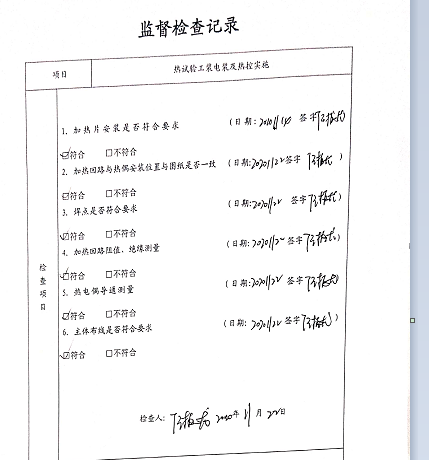 监督检查记录
项目 热试验工装电装及热控实施
检查项目
1. 加热片安装是否符合要求 (日期: 签字 )
☑符合 □不符合
2. 加热回路与热偶安装位置与图纸是否一致 (日期:20201122 签字 )
☑符合 □不符合
3. 焊点是否符合要求 (日期:20201122 签字 )
☑符合 □不符合
4. 加热回路阻值、绝缘测量 (日期:20201122 签字 )
☑符合 □不符合
5. 热电偶导通测量 (日期:20201122 签字 )
☑符合 □不符合
6. 主体布线是否符合要求 (日期:20201122 签字 )
☑符合 □不符合
检查人: 2020年11月22日